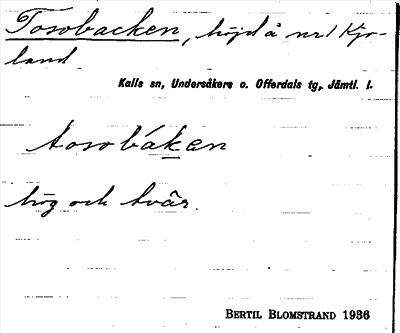 Tosobacken, höjd å nr 1 Kjo-
land
Kalls sn, Undersåkers o. Offerdals tg, Jämtl. l.
tosobáken
hög och tvär.
BERTIL BLOMSTRAND 1936